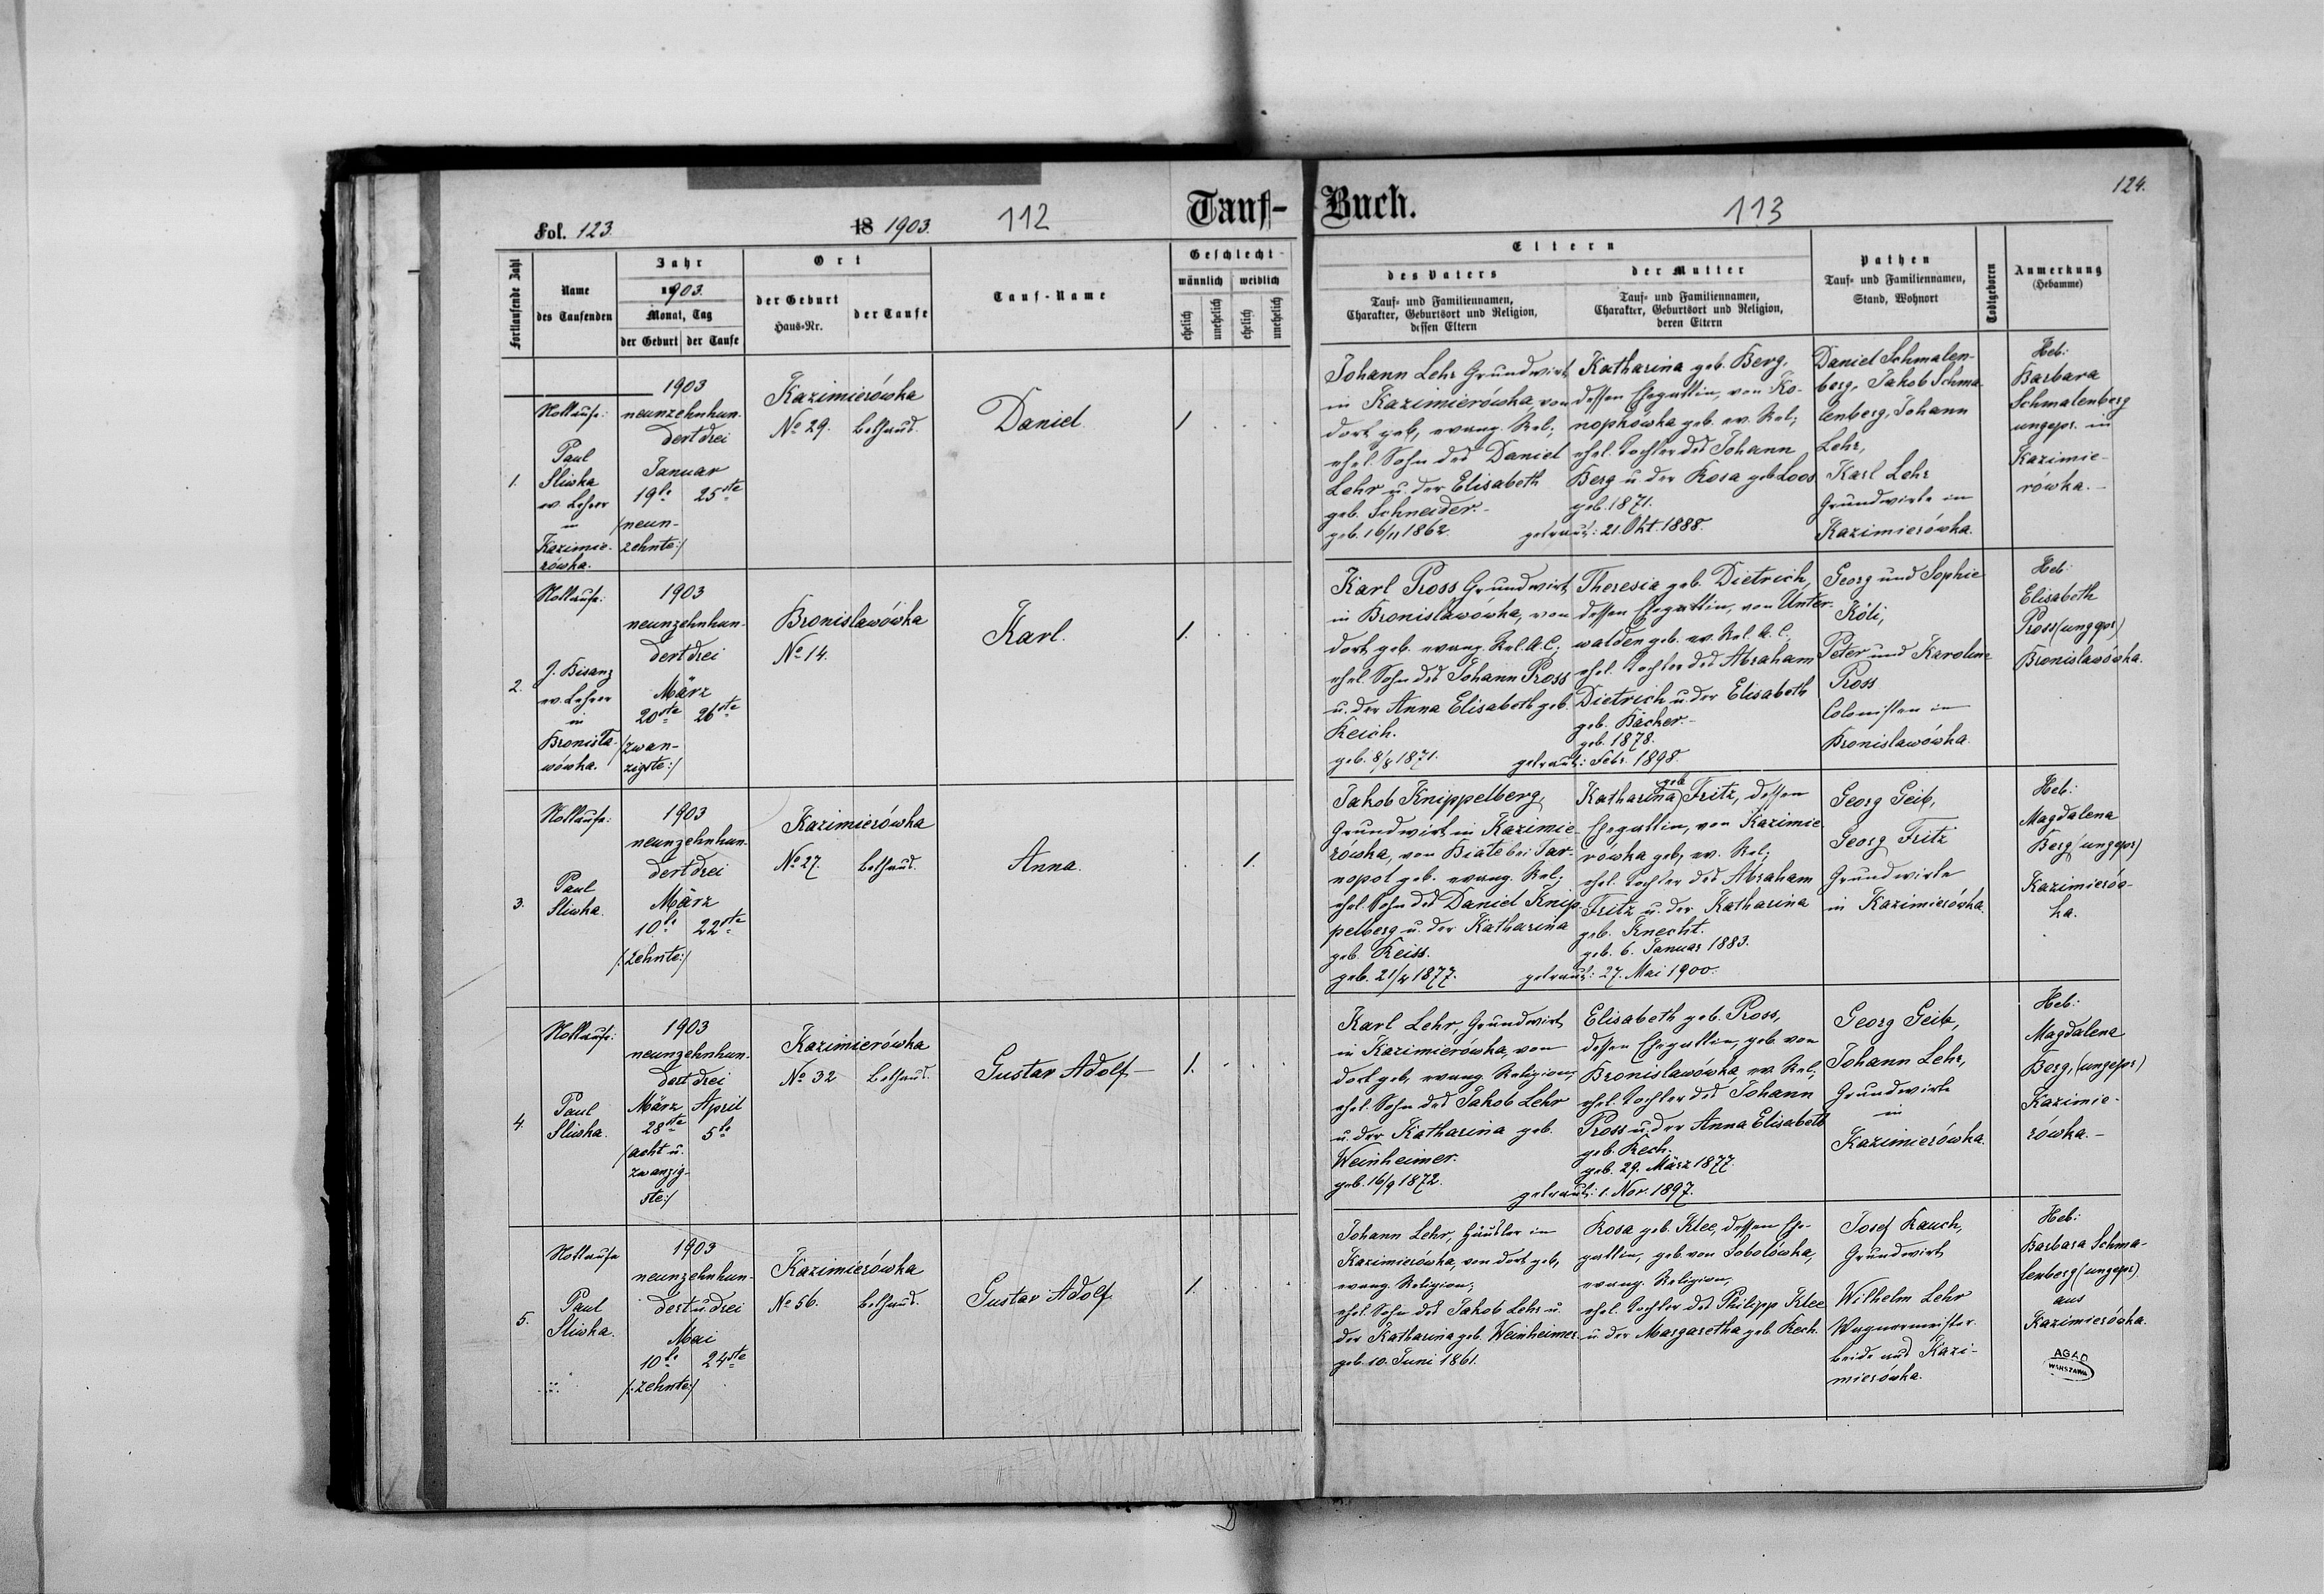 Fol. 123.
18 1903.
112
Tauf-
Buch.
113
124.
Fortlaufende Zahl
Name
des Taufenden
Jahr
1903.
Monat, Tag
der Geburt
der Taufe
Ort
der Geburt
Haus-Nr.
der Taufe
Tauf-Name
Geschlecht
männlich
weiblich
ehelich
unehelich
ehelich
unehelich
Eltern
des Vaters
Tauf- und Familiennamen,
Charakter, Geburtsort und Religion,
dessen Eltern
der Mutter
Tauf- und Familiennamen,
Charakter, Geburtsort und Religion,
deren Eltern
Pathen
Tauf- und Familiennamen,
Stand, Wohnort
Todtgeboren
Anmerkung
(Hebamme)
1.
Nottaufe:
Paul
Sliwka
ev. Lehrer
in
Kazimie-
rówka.
1903
neunzehnhun-
dertdrei
Januar
19te
25ste
/neun-
zehnte:/
Kazimierówka
No 29.
Bethaus.
Daniel
1
Johann Lehr Grundwirt
in Kazimierówka, von
dort geb, evang. Rel;
ehel. Sohn des Daniel
Lehr u. der Elisabeth
geb. Schneider.-
geb. 16/11 1862.
Katharina geb. Berg,
dessen Ehegattin, von Ko-
nopkówka geb. ev. Rel;
ehel. Tochter des Johann
Berg u. der Rosa geb Loos
geb. 1871.
getraut: 21. Okt. 1888.
Daniel Schmalen-
berg, Jakob Schma-
lenberg, Johann
Lehr,
Karl Lehr
Grundwirte in
Kazimierówka.
Heb:
Barbara
Schmalenberg
ungepr. in
Kazimie-
rówka.-
2.
Nottaufe:
J. Bisanz
ev. Lehrer
in
Bronisła-
wówka.
1903
neunzehnhun-
dertdrei
März
20ste
26ste
/zwan-
zigste:/
Bronislawówka
No 14.
Karl.
1.
Karl Pross Grundwirt
in Bronislawówka, von
dort geb. evang. Rel. A.C;
ehel. Sohn des Johann Pross
u. der Anna Elisabeth geb.
Reich.
geb. 8/8 1871.
Theresia geb. Dietrich,
dessen Ehegattin, von Unter-
walden geb. ev. Rel. A. C,
ehel. Tochter des Abraham
Dietrich u. der Elisabeth
geb. Bächer.-
geb. 1878.
getraut: Febr. 1898.
Georg und Sophie
Köli,
Peter und Karoline
Pross
Colonisten in
Bronislawówka.
Heb:
Elisabeth
Pross (ungepr)
Bronislawówka.
3.
Nottaufe:
Paul
Sliwka.
1903
neunzehnhun-
dertdrei
März
10te
22ste
/:zehnte:/
Kazimierówka
No 27.
Bethaus.
Anna.
1.
Jakob Knippelberg,
Grundwirt in Kazimie-
rówka, von Białe bei Tar-
nopol geb. evang. Rel;
ehel. Sohn des Daniel Knip-
pelberg u. der Katharina
geb. Reiss.
geb. 21/4 1877.
Katharina geb Fritz, dessen
Ehegattin, von Kazimie-
rówka geb, ev. Rel;
ehel. Tochter des Abraham
Fritz u. der Katharina
geb. Knecht.
geb. 6. Januar 1883.
getraut: 27. Mai 1900.
Georg Geib,
Georg Fritz
Grundwirte
in Kazimierówka.
Heb:
Magdalena
Berg (ungepr)
Kazimierów-
ka.
4.
Nottaufe:
Paul
Sliwka.
1903
neunzehnhun-
dert drei
März
April
28ste
5te
/acht u.
zwanzig-
ste:/
Kazimierówka
No 32
Bethaus.
Gustav Adolf-
1.
Karl Lehr, Grundwirt
in Kazimierówka, von
dort geb, evang. Religion;
ehel. Sohn des Jakob Lehr
u. der Katharina geb.
Weinheimer.
geb. 16/9 1872.
Elisabeth geb. Pross,
dessen Ehegattin, geb. von
Bronislawówka, ev. Rel;
ehel. Tochter des Johann
Pross u. der Anna Elisabeth
geb. Rech.
geb. 29. März 1877.
getraut: 1. Nov. 1897.
Georg Geib,
Johann Lehr,
Grundwirte
in
Kazimierówka.
Heb:
Magdalena
Berg, (ungepr)
Kazimie-
rówka.-
5.
Nottaufe
Paul
Sliwka.
1903
neunzehnhun-
dert u. drei
Mai
10te
24ste
/:zehnte:/
Kazimierówka
No 56.
Bethaus.
Gustav Adolf
1.
Johann Lehr, Häusler in
Kazimierówka, von dort geb,
evang. Religion;
ehel. Sohn des Jakob Lehr u.
der Katharina geb. Weinheimer
geb. 10. Juni 1861.
Rosa geb. Klee, dessen Ehe-
gattin, geb. von Sobolówka,
evang. Religion,
ehel. Tochter des Philipp Klee
u. der Margaretha geb. Rech.
Josef Rauch,
Grundwirt
Wilhelm Lehr
Wagnermeister
beide aus Kazi-
mierówka.
Heb:
Barbara Schma-
lenberg (ungepr)
aus
Kazimierówka.
AGAD
WARSZAWA